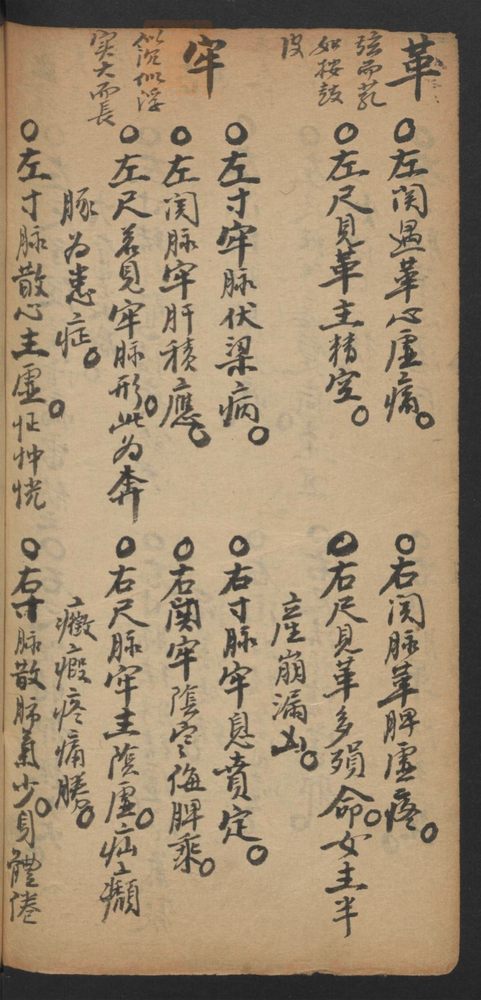 革
弦而芤
如按鼓
皮
○左関遇革心虛痛○
○右関脉革脾虛疼○
○左尺見革主精空○
○右尺見革多殞命○女主半
產崩漏凶○
牢
似沉似浮
实大而長
○左寸牢脉伏梁病○
○右寸脉牢息賁定○
○左関脉牢肝積應○
○右関牢陰寒侮脾乘○
○左尺若見牢脉形○此为奔
豚为患症○
○右尺脉牢主陰虛○疝癲
癥瘕疼痛勝○
○左寸脉散心主虛○怔忡恍
○右寸脉散肺氣少○身體倦